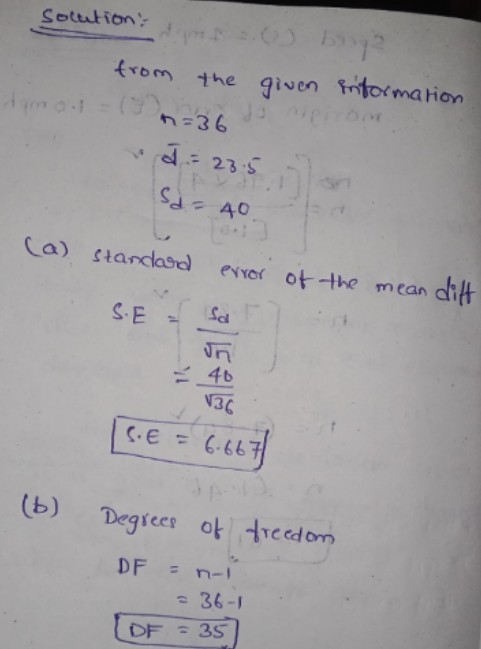 Solution:-
from the given information
n=36
d̄ = 23.5
Sd = 40
(a) standard error of the mean diff
S.E = Sd / √n
= 40 / √36
S.E = 6.667
(b) Degrees of freedom
DF = n-1
= 36-1
DF = 35